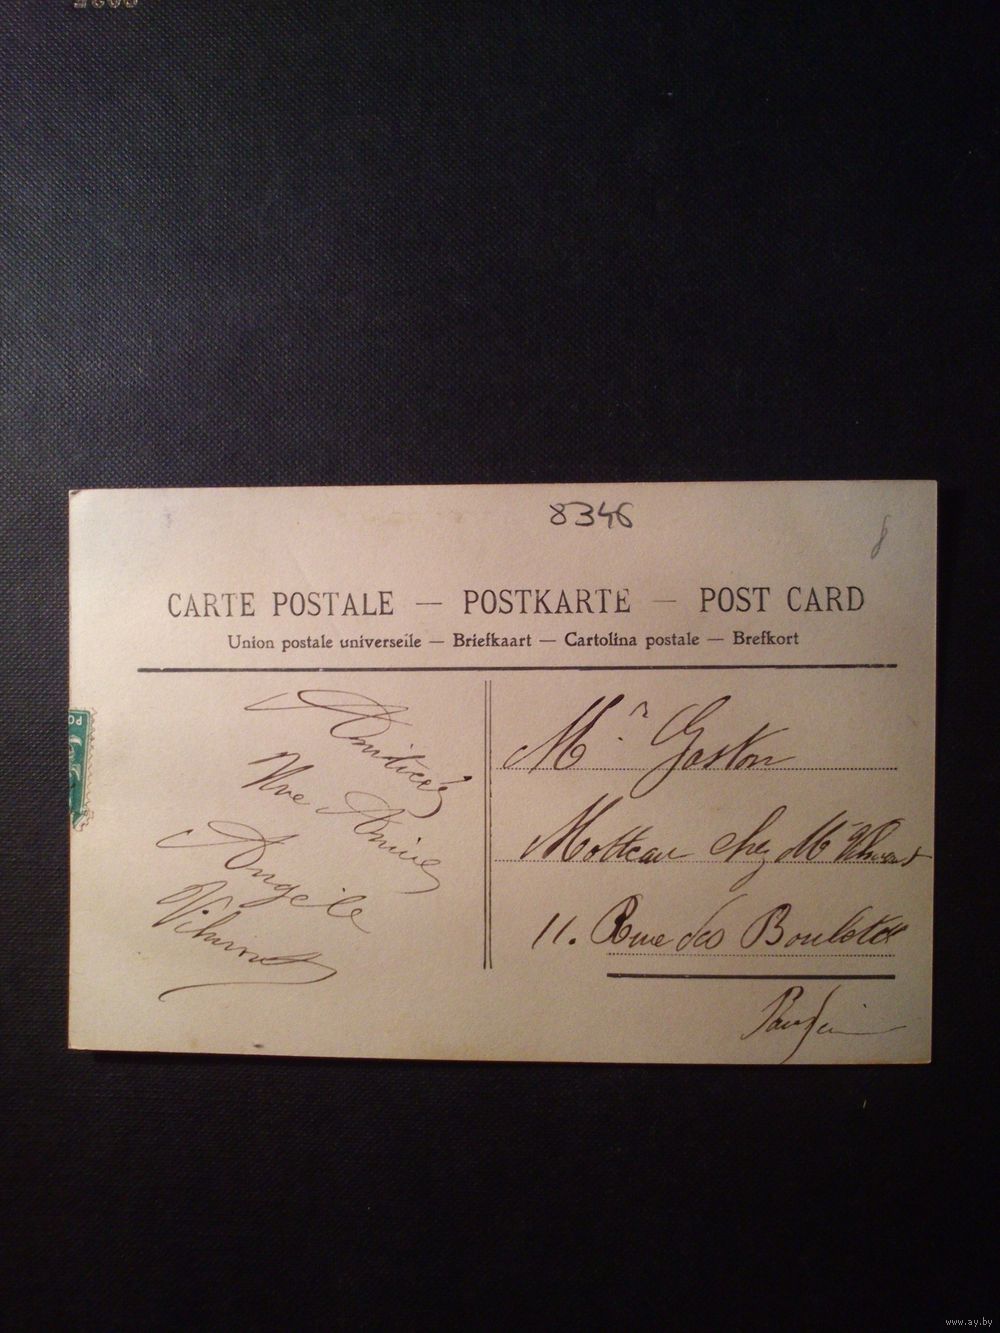 8346
8
CARTE POSTALE — POSTKARTE — POST CARD
Union postale universelle — Briefkaart — Cartolina postale — Brefkort
Amitiés
Angèle
Mr Gaston
Motteau chez Mr
11. Rue des Boulets
www.ay.by